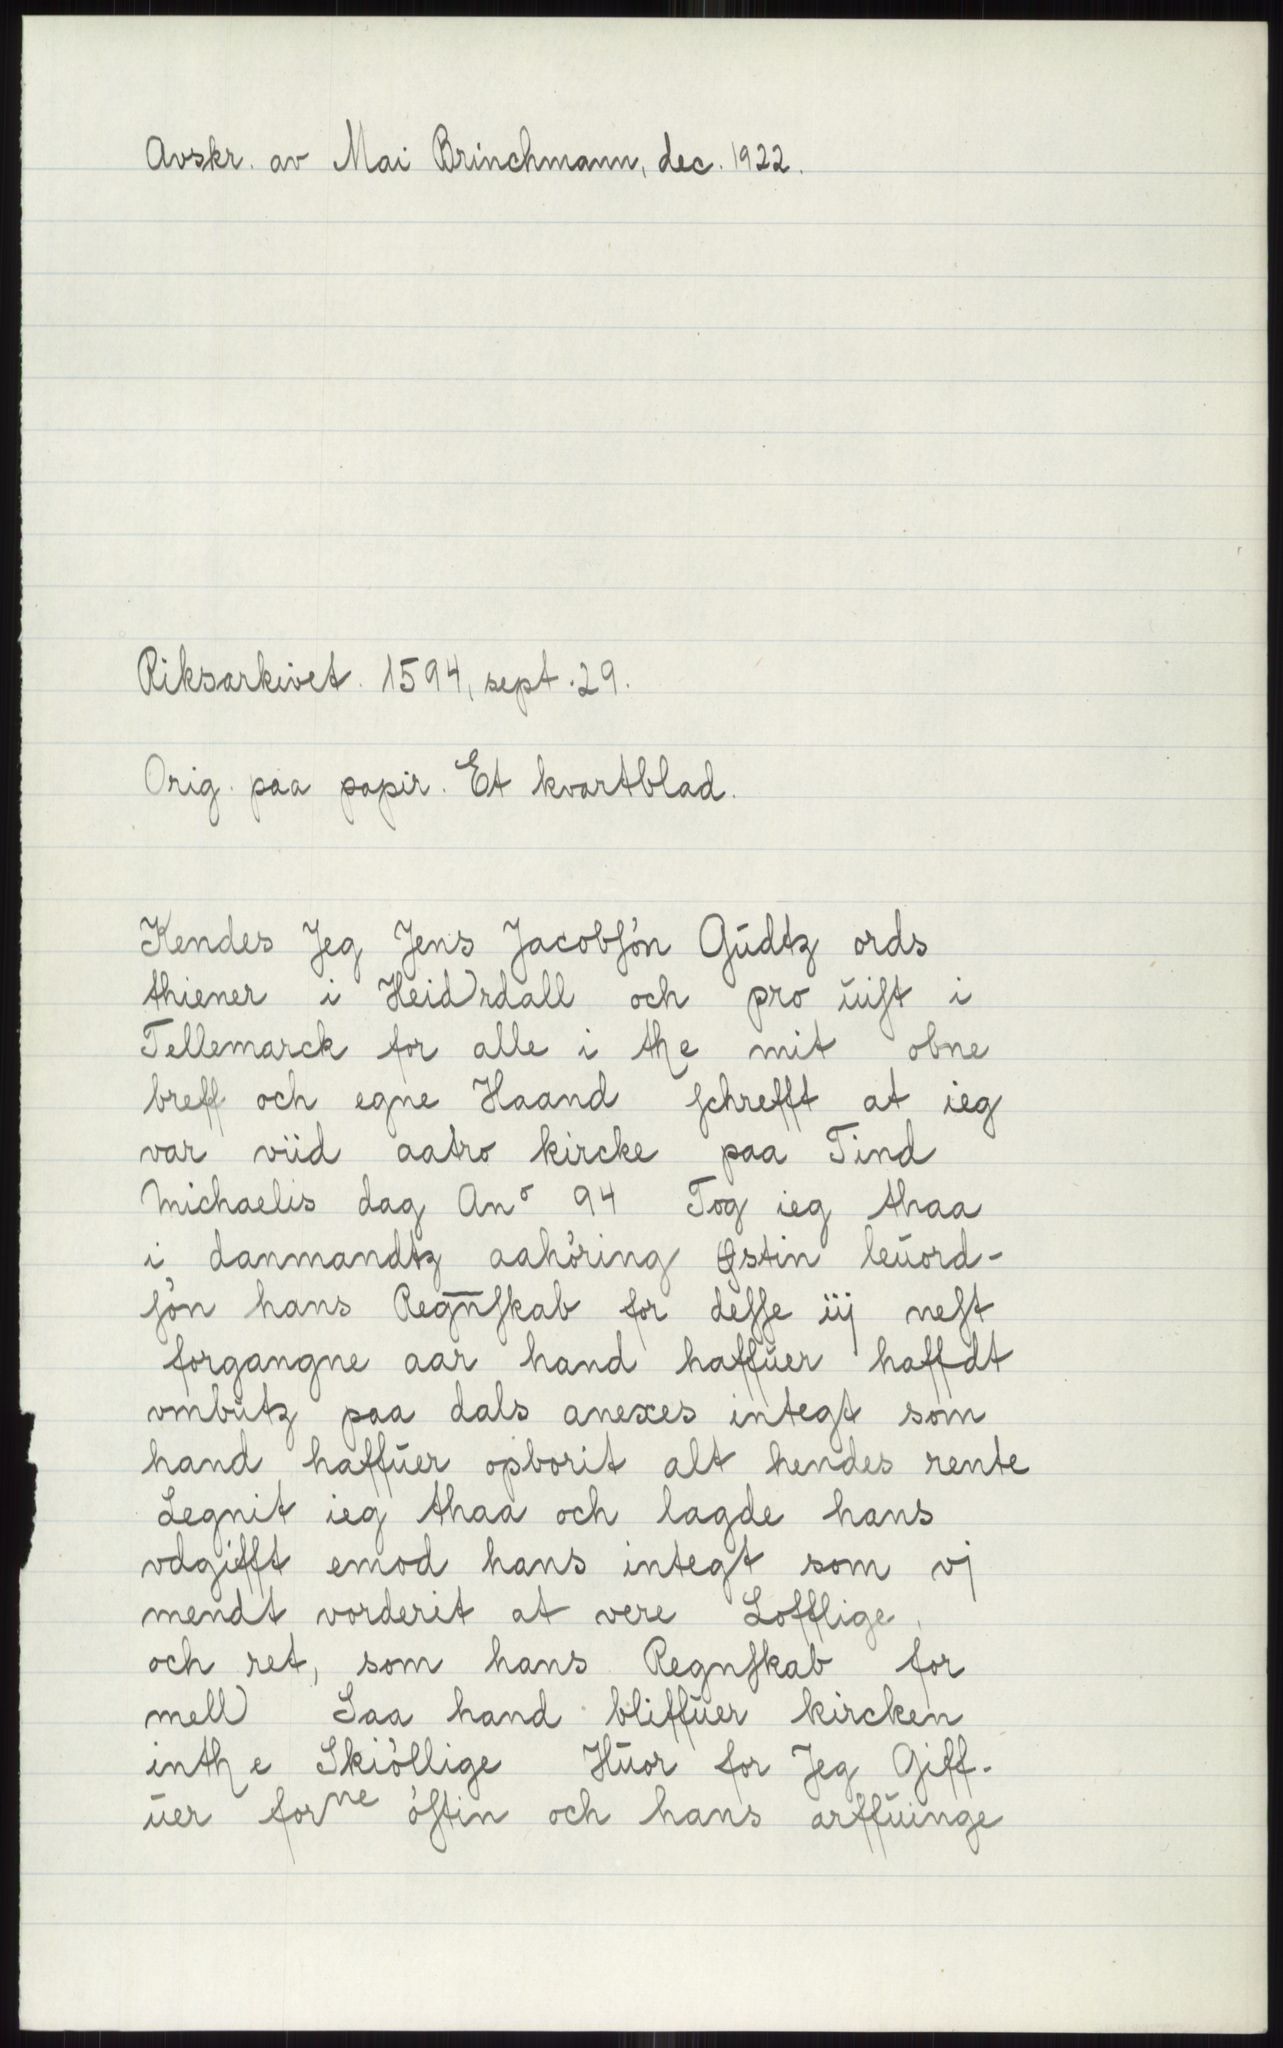 Avskr. av Mai Brinchmann, dec. 1922.
Riksarkivet. 1594, sept. 29.
Orig. paa papir. Et kvartblad.
Kendes Jeg Jens Jacobſøn Gŭdtz ords
thiener i Heidrdall och pro ŭiſt i
Tellemarck for alle i the mit obne
breff och egne Haand ſchrefft at ieg
var viid aatro kircke paa Tind
Michaelis dag Anº 94 Tog ieg thaa
i danmandtz aahøring Østin leŭord-
ſøn hans Regn̅ſkab for deſſe iij neſt
forgangne aar hand haffŭer haffdt
vmbŭtz paa dals anexes integt som
hand haffŭer opborit alt hendes rente
Legnit ieg thaa och lagde hans
vdgifft emod hans integt som vj
mendt vorderit at vere Lofflige
och ret, som hans Regnſkab for
mell Saa hand bliffŭer kircken
inthe Skiøllige Hŭor for Jeg Giff-
ŭer forne øſtin och hans arffŭinge